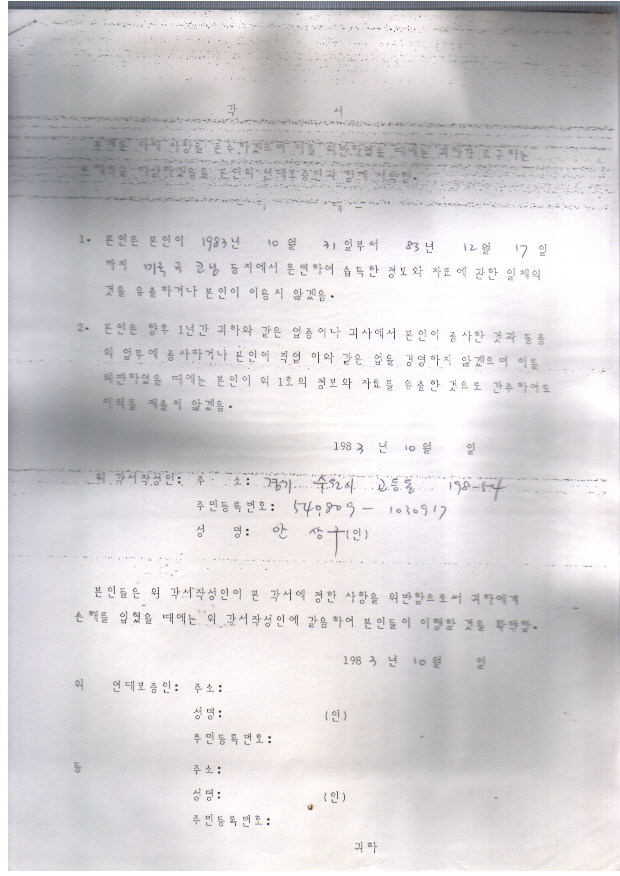 각 서
본인은 아래 사항을 준수하겠으며 이를 위반하였을 때에는 귀하가 요구하는
손해액을 배상하겠음을 본인의 연대보증인과 함께 서약함.
- 아 래 -
1. 본인은 본인이 1983년 10월 31일부터 83년 12월 17일
까지 미국 국 등지에서 훈련하여 습득한 정보와 자료에 관한 일체의
것을 유출하거나 본인이 이용치 않겠음.
2. 본인은 향후 1년간 귀하와 같은 업종이나 귀사에서 본인이 종사한 것과 동종
의 업무에 종사하거나 본인이 직업 이와 같은 업을 경영하지 않겠으며 이를
위반하였을 때에는 본인이 위 1호의 정보와 자료를 유출한 것으로 간주하여도
이의를 제출치 않겠음.
1983 년 10월 일
위 각서작성인: 주 소: 경기 수원시 고등동 198-54
주민등록번호: 540809 - 1030917
성 명: 안 상구 (인)
본인들은 위 각서작성인이 본 각서에 정한 사항을 위반함으로써 귀하에게
손해를 입혔을 때에는 위 각서작성인에 갈음하여 본인들이 이행할 것을 확약함.
1983 년 10월 일
위 연대보증인: 주소:
성명: (인)
주민등록번호:
동 주소:
성명: (인)
주민등록번호:
귀하